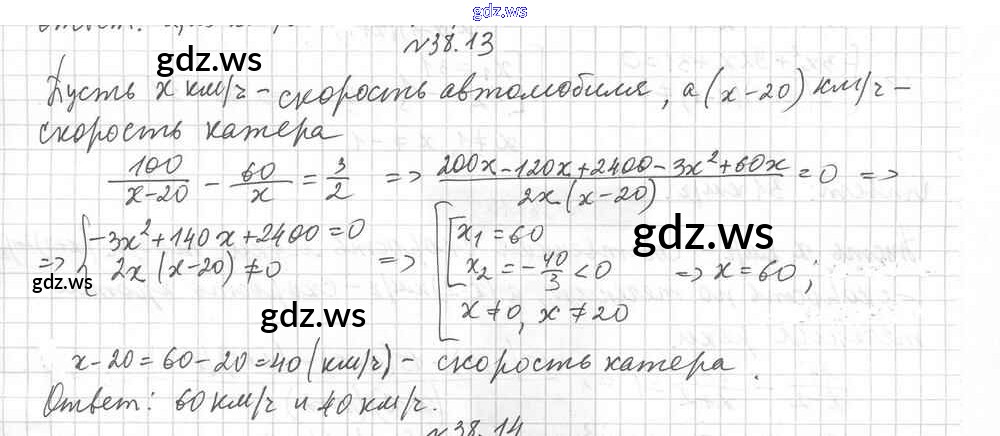 gdz.ws
N38.13
gdz.ws
Пусть x км/ч - скорость автомобиля, а (x-20) км/ч -
скорость катера
100/(x-20) - 60/x = 3/2 => (200x-120x+2400-3x²+60x)/(2x(x-20)) = 0 =>
=> { -3x²+140x+2400=0 => [ [ x₁=60
2x(x-20)≠0 x₂=-40/3<0 => x=60;
x≠0, x≠20
gdz.ws
gdz.ws
gdz.ws
x-20=60-20=40 (км/ч) - скорость катера.
Ответ: 60 км/ч и 40 км/ч.
N38.14